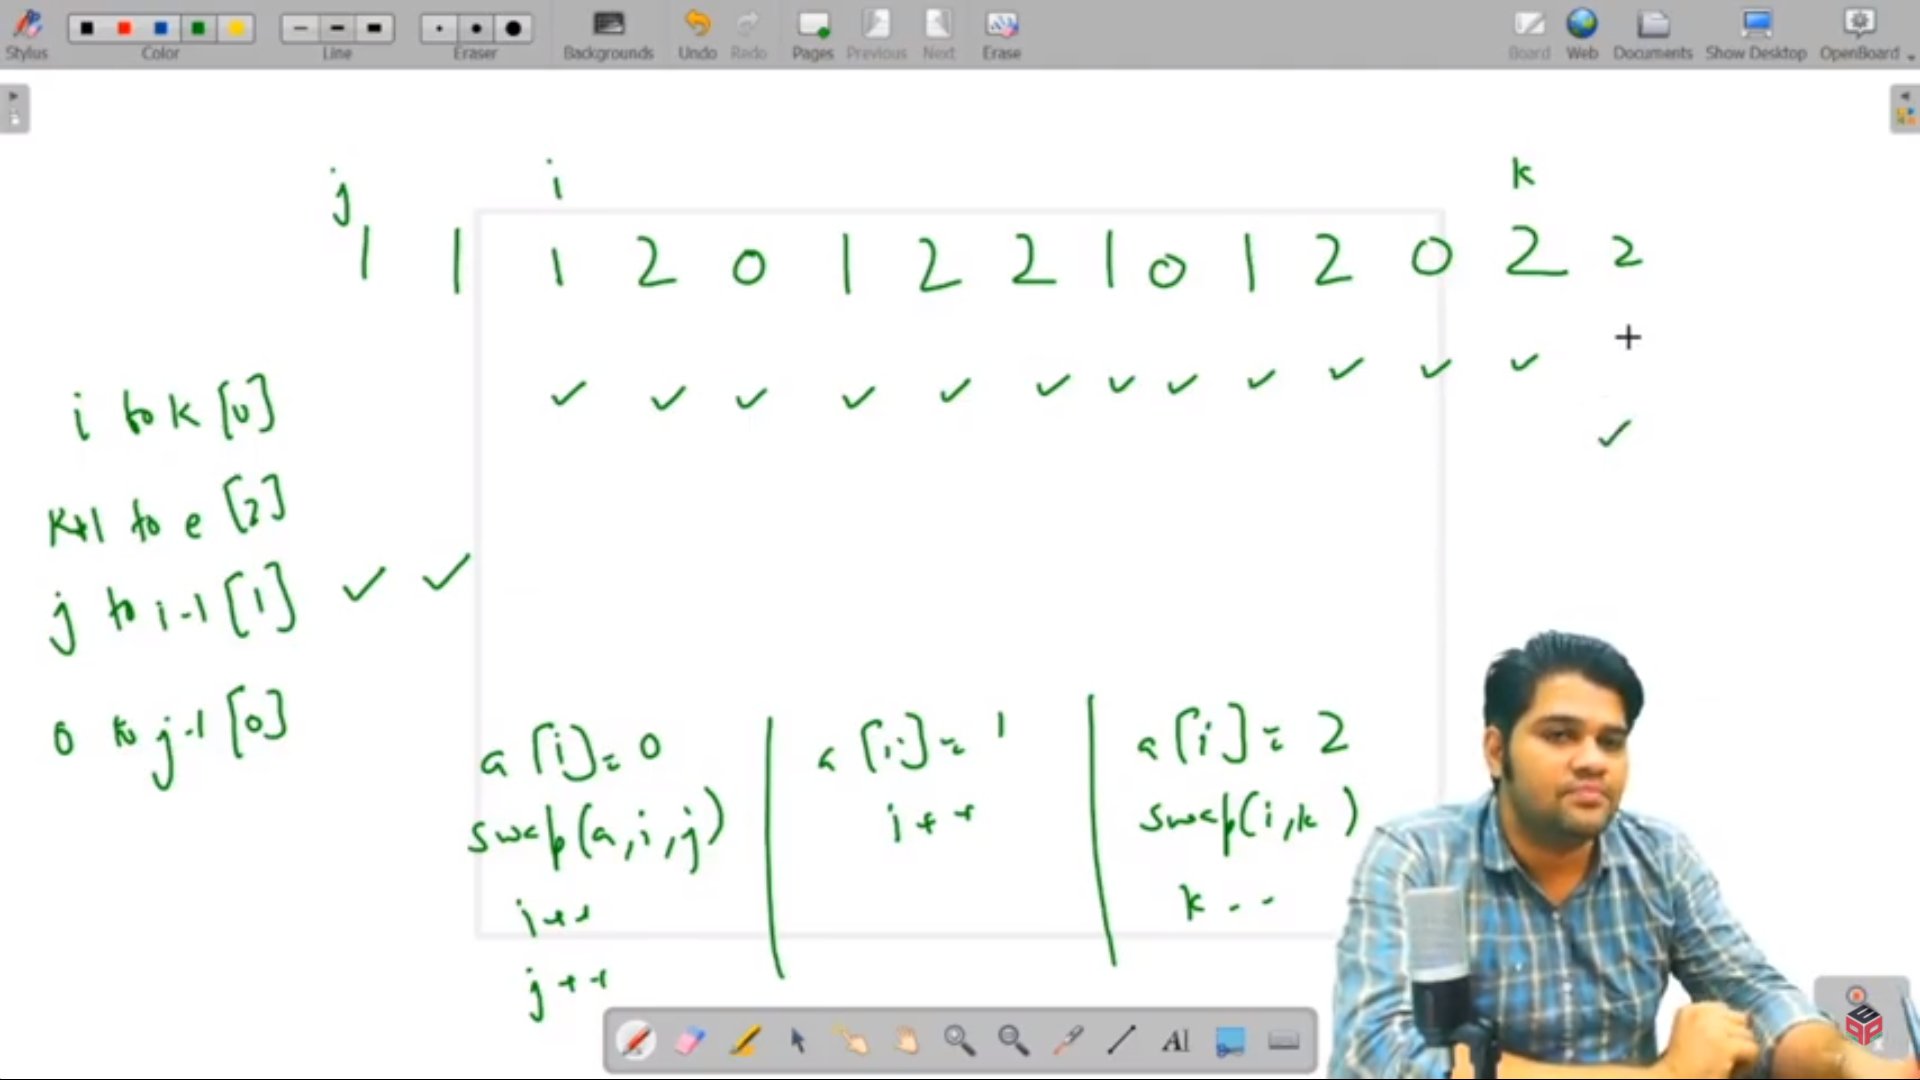 Stylus Color Line Eraser Backgrounds Undo Redo Pages Previous Next Erase Board Web Documents Show Desktop OpenBoard
j i k
1 1 1 2 0 1 2 2 1 0 1 2 0 2 2
i to k [u]
k+1 to e [2]
j to i-1 [1]
0 to j-1 [0]
a[i]=0
swap(a,i,j)
i++
j++
a[i]=1
i++
a[i]=2
swap(i,k)
k--
AI